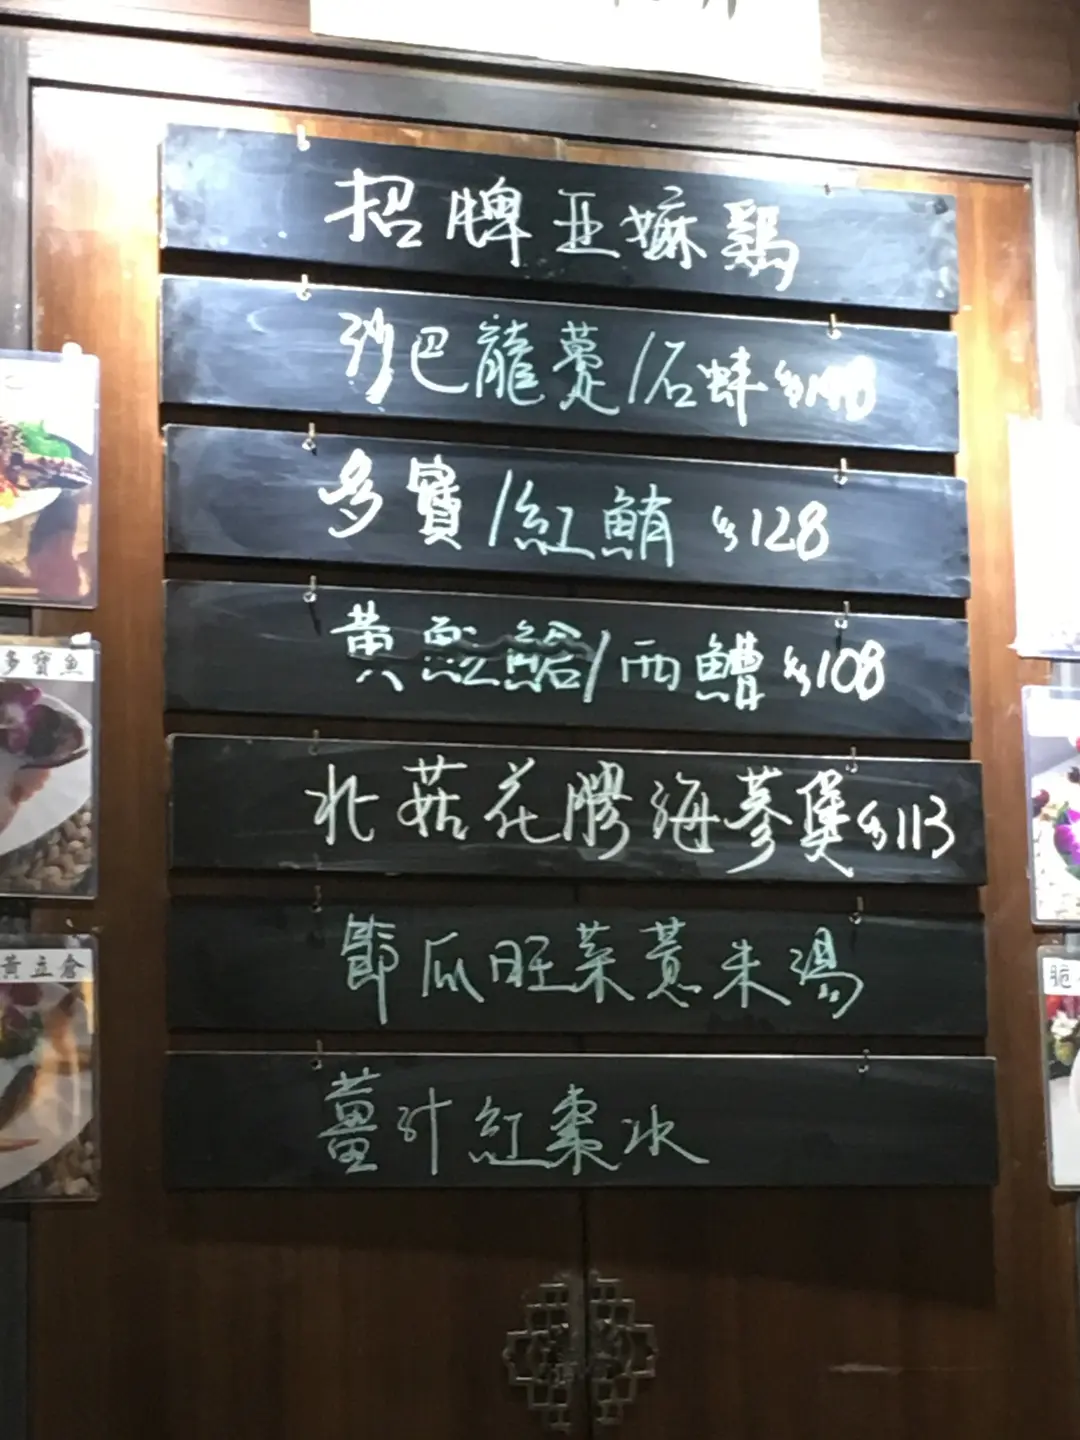 招牌亞嫲鷄
沙巴龍躉/石蚌 $148
多寶/紅鮹 $128
黃 鮯/西鱠 $108
北菇花膠海蔘煲 $113
節瓜旺菜薏米湯
薑汁紅棗冰
多寶魚
黃立倉
脆